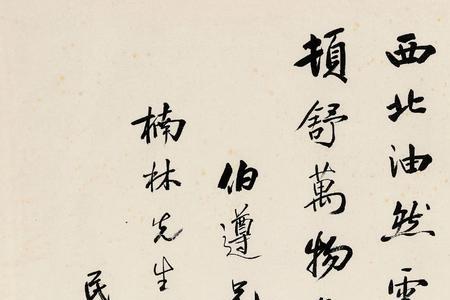 西北油然雲
頓舒萬物
伯遵兄
楠林先生
民